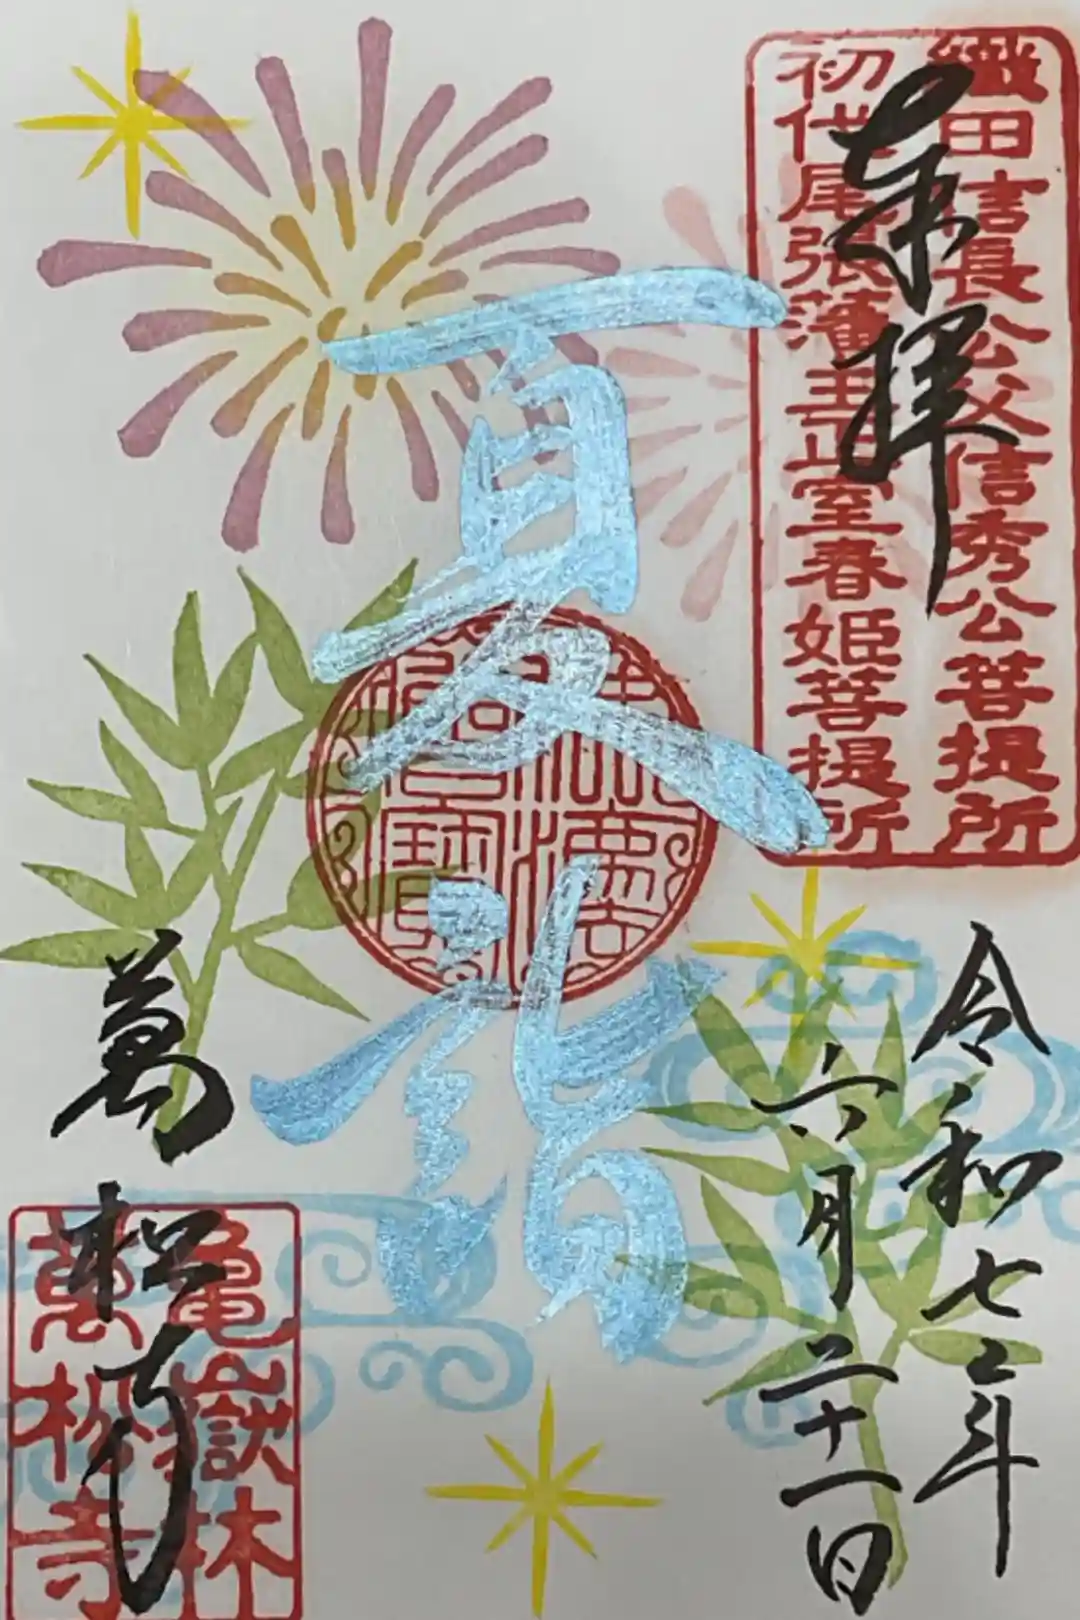 織田信長公父信秀公菩提所
初代尾張藩主正室春姫菩提所
奉拝
夏詣
佛法僧寶
令和七年
六月二十一日
萬松寺
亀嶽林
萬松寺